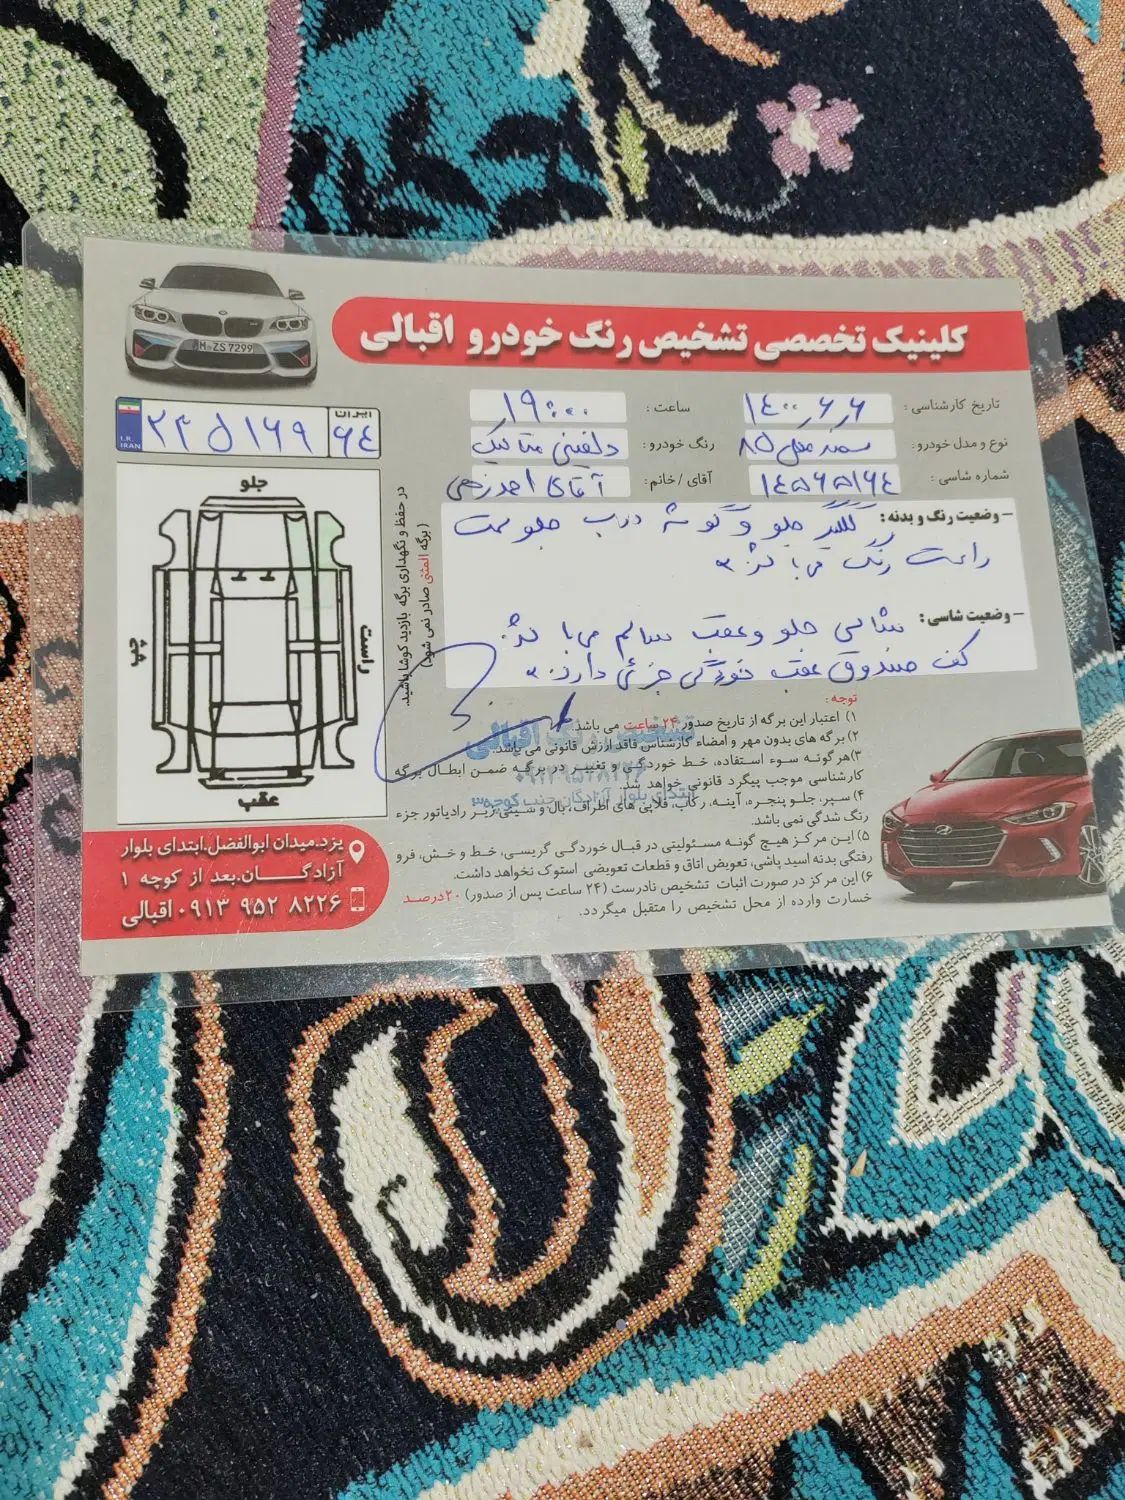 کلینیک تخصصی تشخیص رنگ خودرو اقبالی
تاریخ کارشناسی: ۱۴۰۰٫۶٫۶ ساعت: ۱۹:۰۰
نوع و مدل خودرو: سمند مدل ۸۵ رنگ خودرو: دلفینی متالیک
شماره شاسی: ۱۴۵۶۵۱۶۴ آقای / خانم: آقای
ایران
۲۴ ل ۱۶۹ ۶۴
I.R.
IRAN
M·ZS 7299
جلو
چپ
راست
عقب
در حفظ و نگهداری برگه بازدید کوشا باشید.
(برگه المثنی صادر نمی شود)
– وضعیت رنگ و بدنه: گلگیر جلو و گوشه درب جلو سمت
راست رنگ می باشد.
– وضعیت شاسی: شاسی جلو و عقب سالم می باشد.
کف صندوق عقب خوردگی جزئی دارد.
توجه:
۱) اعتبار این برگه از تاریخ صدور ۲۴ ساعت می باشد.
۲) برگه های بدون مهر و امضاء کارشناس فاقد ارزش قانونی می باشد.
۳)هر گونه سوء استفاده، خط خوردگی و تغییر در برگه ضمن ابطال برگه
کارشناسی موجب پیگرد قانونی خواهد شد.
۴) سپر، جلو پنجره، آینه، رکاب، قلابی های اطراف، بال و سینی زیر رادیاتور جزء
رنگ شدگی نمی باشد.
۵) این مرکز هیچ گونه مسئولیتی در قبال خوردگی گریسی، خط و خش، فرو
رفتگی بدنه اسید پاشی، تعویض اتاق و قطعات تعویضی استوک نخواهد داشت.
۶) این مرکز در صورت اثبات تشخیص نادرست (۲۴ ساعت پس از صدور) ۲۰درصد
خسارت وارده از محل تشخیص را متقبل میگردد.
تشخیص رنگ اقبالی
۰۹۱۳۹۵۲۸۲۲۶
ابتدای بلوار آزادگان جنب کوچه
یزد.میدان ابوالفضل.ابتدای بلوار
آزادگـــان.بعد از کوچه ۱
۰۹۱۳ ۹۵۲ ۸۲۲۶ اقبالی